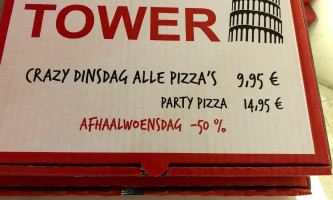 TOWER
CRAZY DINSDAG ALLE PIZZA'S 9,95 €
PARTY PIZZA 14,95 €
AFHAALWOENSDAG -50 %